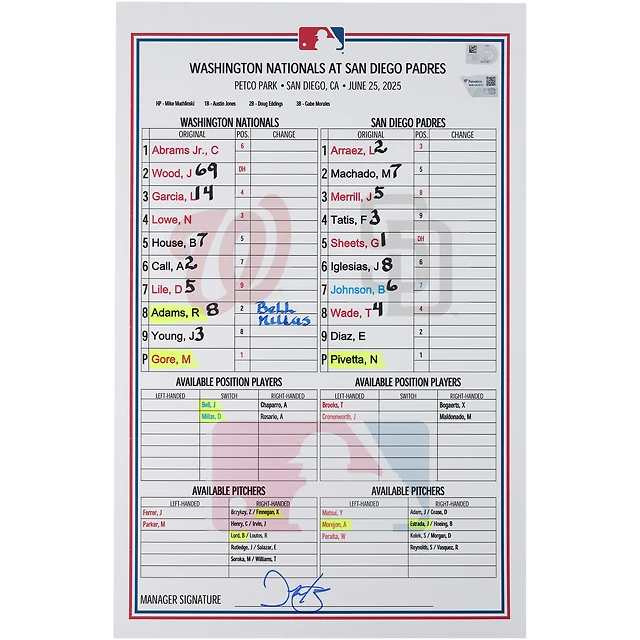 WASHINGTON NATIONALS AT SAN DIEGO PADRES
PETCO PARK • SAN DIEGO, CA • JUNE 25, 2025
HP - Mike Muchlinski 1B - Austin Jones 2B - Doug Eddings 3B - Gabe Morales
WASHINGTON NATIONALS SAN DIEGO PADRES
ORIGINAL POS. CHANGE ORIGINAL POS. CHANGE
1 Abrams Jr., C 6 1 Arraez, L 2 3
2 Wood, J 69 DH 2 Machado, M 7 5
3 Garcia, L 14 4 3 Merrill, J 5 8
4 Lowe, N 3 4 Tatis, F 3 9
5 House, B 7 5 5 Sheets, G 1 DH
6 Call, A 2 7 6 Iglesias, J 8 6
7 Lile, D 5 9 7 Johnson, B 6 7
8 Adams, R 8 2 Bell 8 Wade, T 4 4
Millas
9 Young, J 3 8 9 Diaz, E 2
P Gore, M 1 P Pivetta, N 1
AVAILABLE POSITION PLAYERS AVAILABLE POSITION PLAYERS
LEFT-HANDED SWITCH RIGHT-HANDED LEFT-HANDED SWITCH RIGHT-HANDED
Bell, J Chaparro, A Brooks, T Bogaerts, X
Millas, D Rosario, A Cronenworth, J Maldonado, M
AVAILABLE PITCHERS AVAILABLE PITCHERS
LEFT-HANDED RIGHT-HANDED LEFT-HANDED RIGHT-HANDED
Ferrer, J Brzykcy, Z / Finnegan, K Matsui, Y Adam, J / Cease, D
Parker, M Henry, C / Irvin, J Morejon, A Estrada, J / Hoeing, B
Lord, B / Loutos, R Peralta, W Kolek, S / Morgan, D
Rutledge, J / Salazar, E Reynolds, S / Vasquez, R
Soroka, M / Williams, T
MANAGER SIGNATURE